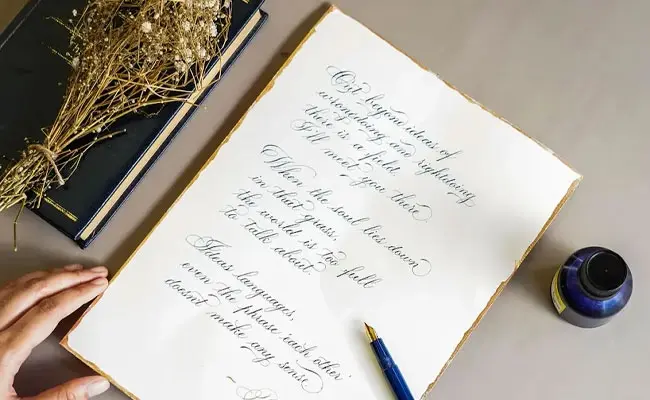 Out beyond ideas of
wrongdoing and rightdoing
there is a field.
I'll meet you there
When the soul lies down
in that grass,
the world is too full
to talk about
Ideas languages,
even the phrase 'each other'
doesn't make any sense